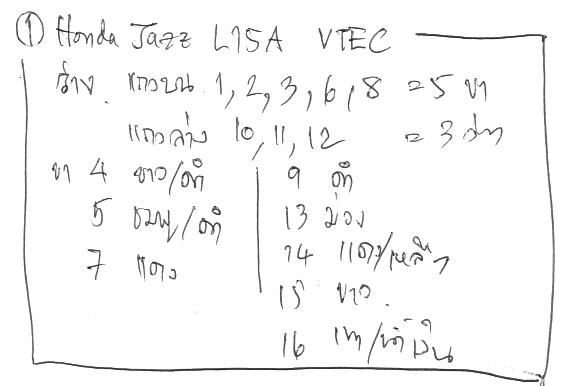 ① Honda Jazz L15A VTEC
ว่าง แถวบน 1, 2, 3, 6, 8 = 5 ขา
แถวล่าง 10, 11, 12 = 3 ขา
ขา 4 ขาว/ดำ
5 ชมพู/ดำ
7 แดง
9 ดำ
13 ม่วง
14 แดง/เหลือง
15 ขาว
16 เทา/น้ำเงิน